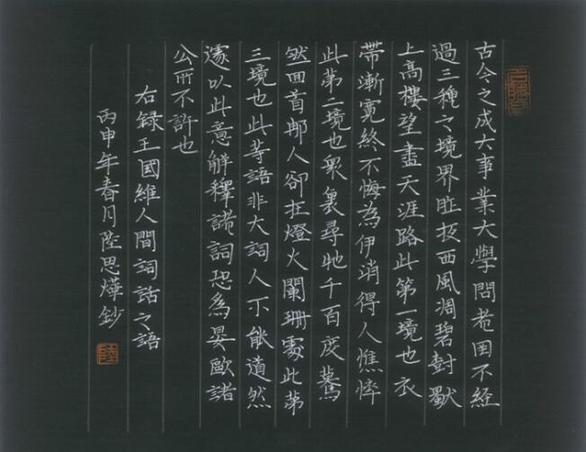 古今之成大事業大學問者罔不經
過三種之境界昨夜西風凋碧樹獨
上高樓望盡天涯路此第一境也衣
帶漸寬終不悔為伊消得人憔悴
此第二境也衆裏尋他千百度驀
然回首那人卻在燈火闌珊處此第
三境也此等語非大詞人不能道然
遽以此意解釋諸詞恐為晏歐諸
公所不許也
右録王國維人間詞話之語
丙申年春月陸思燁鈔
陸